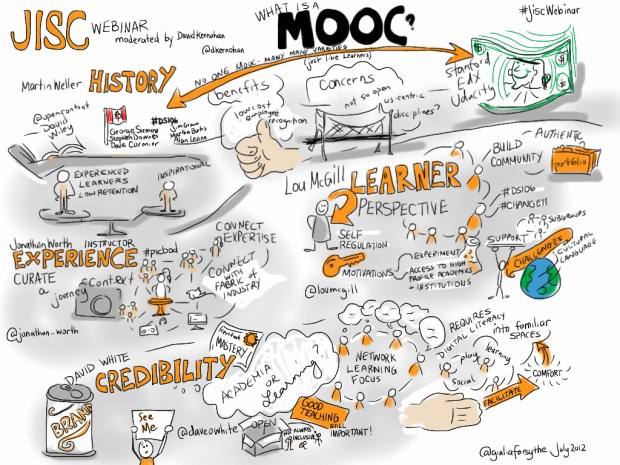 JISC WEBINAR
moderated by David Kernohan
@dkernohan
WHAT IS A
MOOC?
#jiscWebinar
NO ONE MOOC - MANY MANY VARIETIES
(just like learners)
Martin Weller HISTORY
@opencontent
David
Wiley
George Siemens
Stephen Downes
Dave Cormier
#DS106
Jim Groom
Martha Burtis
Alan Levine
benefits
low cost
employee
recognition
Concerns
not so open
us-centric
disciplines?
Stanford
EdX
Udacity
EXPERIENCED
LEARNERS
LOW RETENTION
INSPIRATIONAL
Lou McGill
LEARNER
PERSPECTIVE
SELF
REGULATION
MOTIVATIONS
EXPERIMENT
ACCESS TO HIGH
PROFILE ACADEMICS
+ INSTITUTIONS
@loumcgill
BUILD
COMMUNITY
AUTHENTIC?
portfolio
#DS106
#CHANGE11
SUBGROUPS
SUPPORT
CHALLENGES
CULTURAL
LANGUAGE
Jonathan Worth INSTRUCTOR
EXPERIENCE
#picbod
CURATE
a journey
Context
CONNECT
EXPERTISE
CONNECT
WITH
FABRIC OF
INDUSTRY
@jonathan_worth
DAVID WHITE
CREDIBILITY
BRAND
See
Me
MASTERY
ACADEMIA
or
Learning?
@daveowhite
OPEN
ALWAYS
INCLUSIVE?
GOOD
TEACHING
STILL
IMPORTANT!
NETWORK
LEARNING
FOCUS
REQUIRES
DIGITAL LITERACY
play
learning
social
into familiar
SPACES
COMFORT
FACILITATE
@giuliaforsythe July 2012